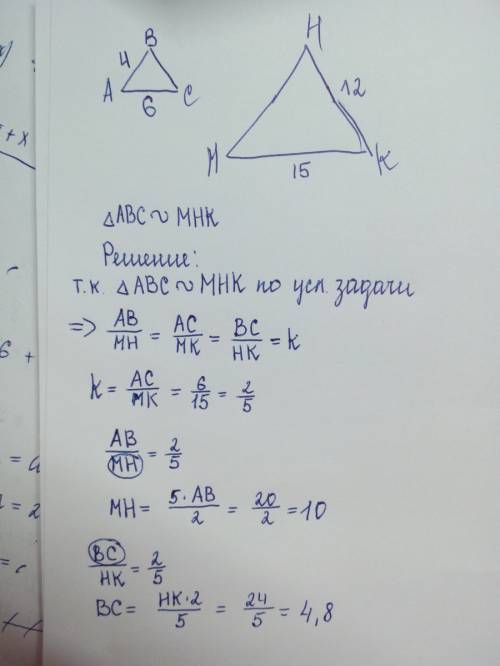 B
4
A 6 C
H
12
M 15 K
△ABC ∾ MHK
Решение:
т.к. △ABC ∾ MHK по усл. задачи
=> AB/MH = AC/MK = BC/HK = k
k = AC/MK = 6/15 = 2/5
AB/MH = 2/5
MH = 5·AB/2 = 20/2 = 10
BC/HK = 2/5
BC = HK·2/5 = 24/5 = 4,8
+ x
6 +
= 2